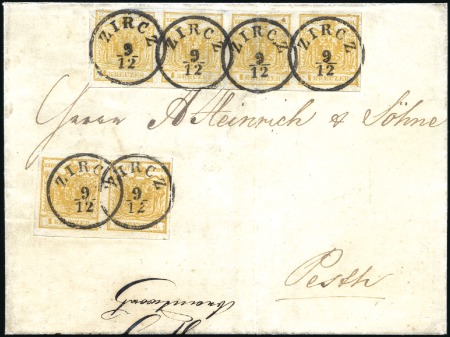 ZIRCZ ZIRCZ ZIRCZ ZIRCZ
9/12 9/12 9/12 9/12
Herrn A Heinrich & Söhne
ZIRCZ ZIRCZ
9/12 9/12
Pesth